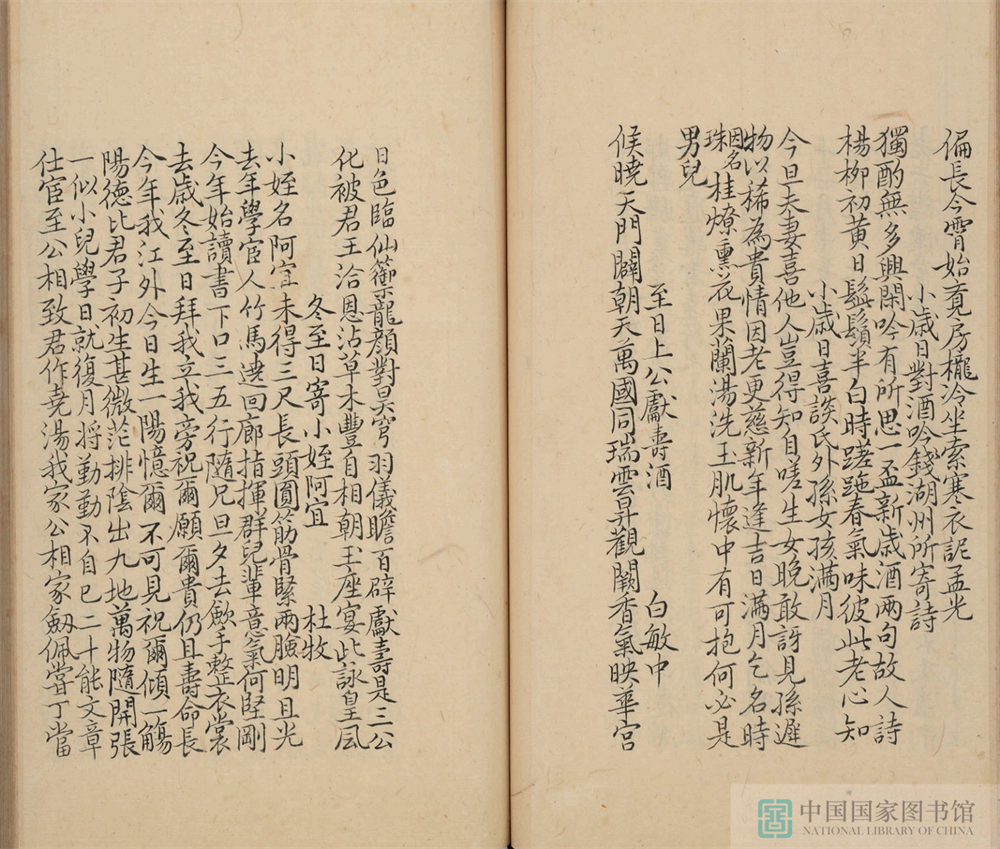 偏長今霄始覔房櫳冷坐索寒衣託孟光
小歲日對酒吟錢湖州所寄詩
獨酌無多興閑吟有所思一盃新歲酒兩句故人詩
楊柳初黃日髭鬚半白時蹉跎春氣味彼此老心知
小歲日喜談氏外孫女孩滿月
今旦夫妻喜他人豈得知自嗟生女晚敢訝見孫遲
物以稀為貴情因老更慈新年逢吉日滿月乞名時
因名珠桂燎熏花果蘭湯洗玉肌懷中有可抱何必是
男兒
至日上公獻壽酒 白敏中
候曉天門闢朝天萬國同瑞雲昇觀闕香氣映華宮
日色臨仙籞龍顏對昊穹羽儀瞻百辟獻壽是三公
化被君王洽恩沾草木豐自相朝玉座宴此詠皇風
冬至日寄小姪阿宜 杜牧
小姪名阿宜未得三尺長頭圓筋骨緊兩臉明且光
去年學官人竹馬遶回廊指揮群兒輩意氣何堅剛
今年始讀書下口三五行隨兄旦夕去歛手整衣裳
去歲冬至日拜我立我旁祝爾願爾貴仍且壽命長
今年我江外今日生一陽憶爾不可見祝爾傾一觴
陽德比君子初生甚微茫排陰出九地萬物隨開張
一似小兒學日就復月將勤勤不自已二十能文章
仕宦至公相致君作堯湯我家公相家劒佩嘗丁當
中国国家图书馆
NATIONAL LIBRARY OF CHINA